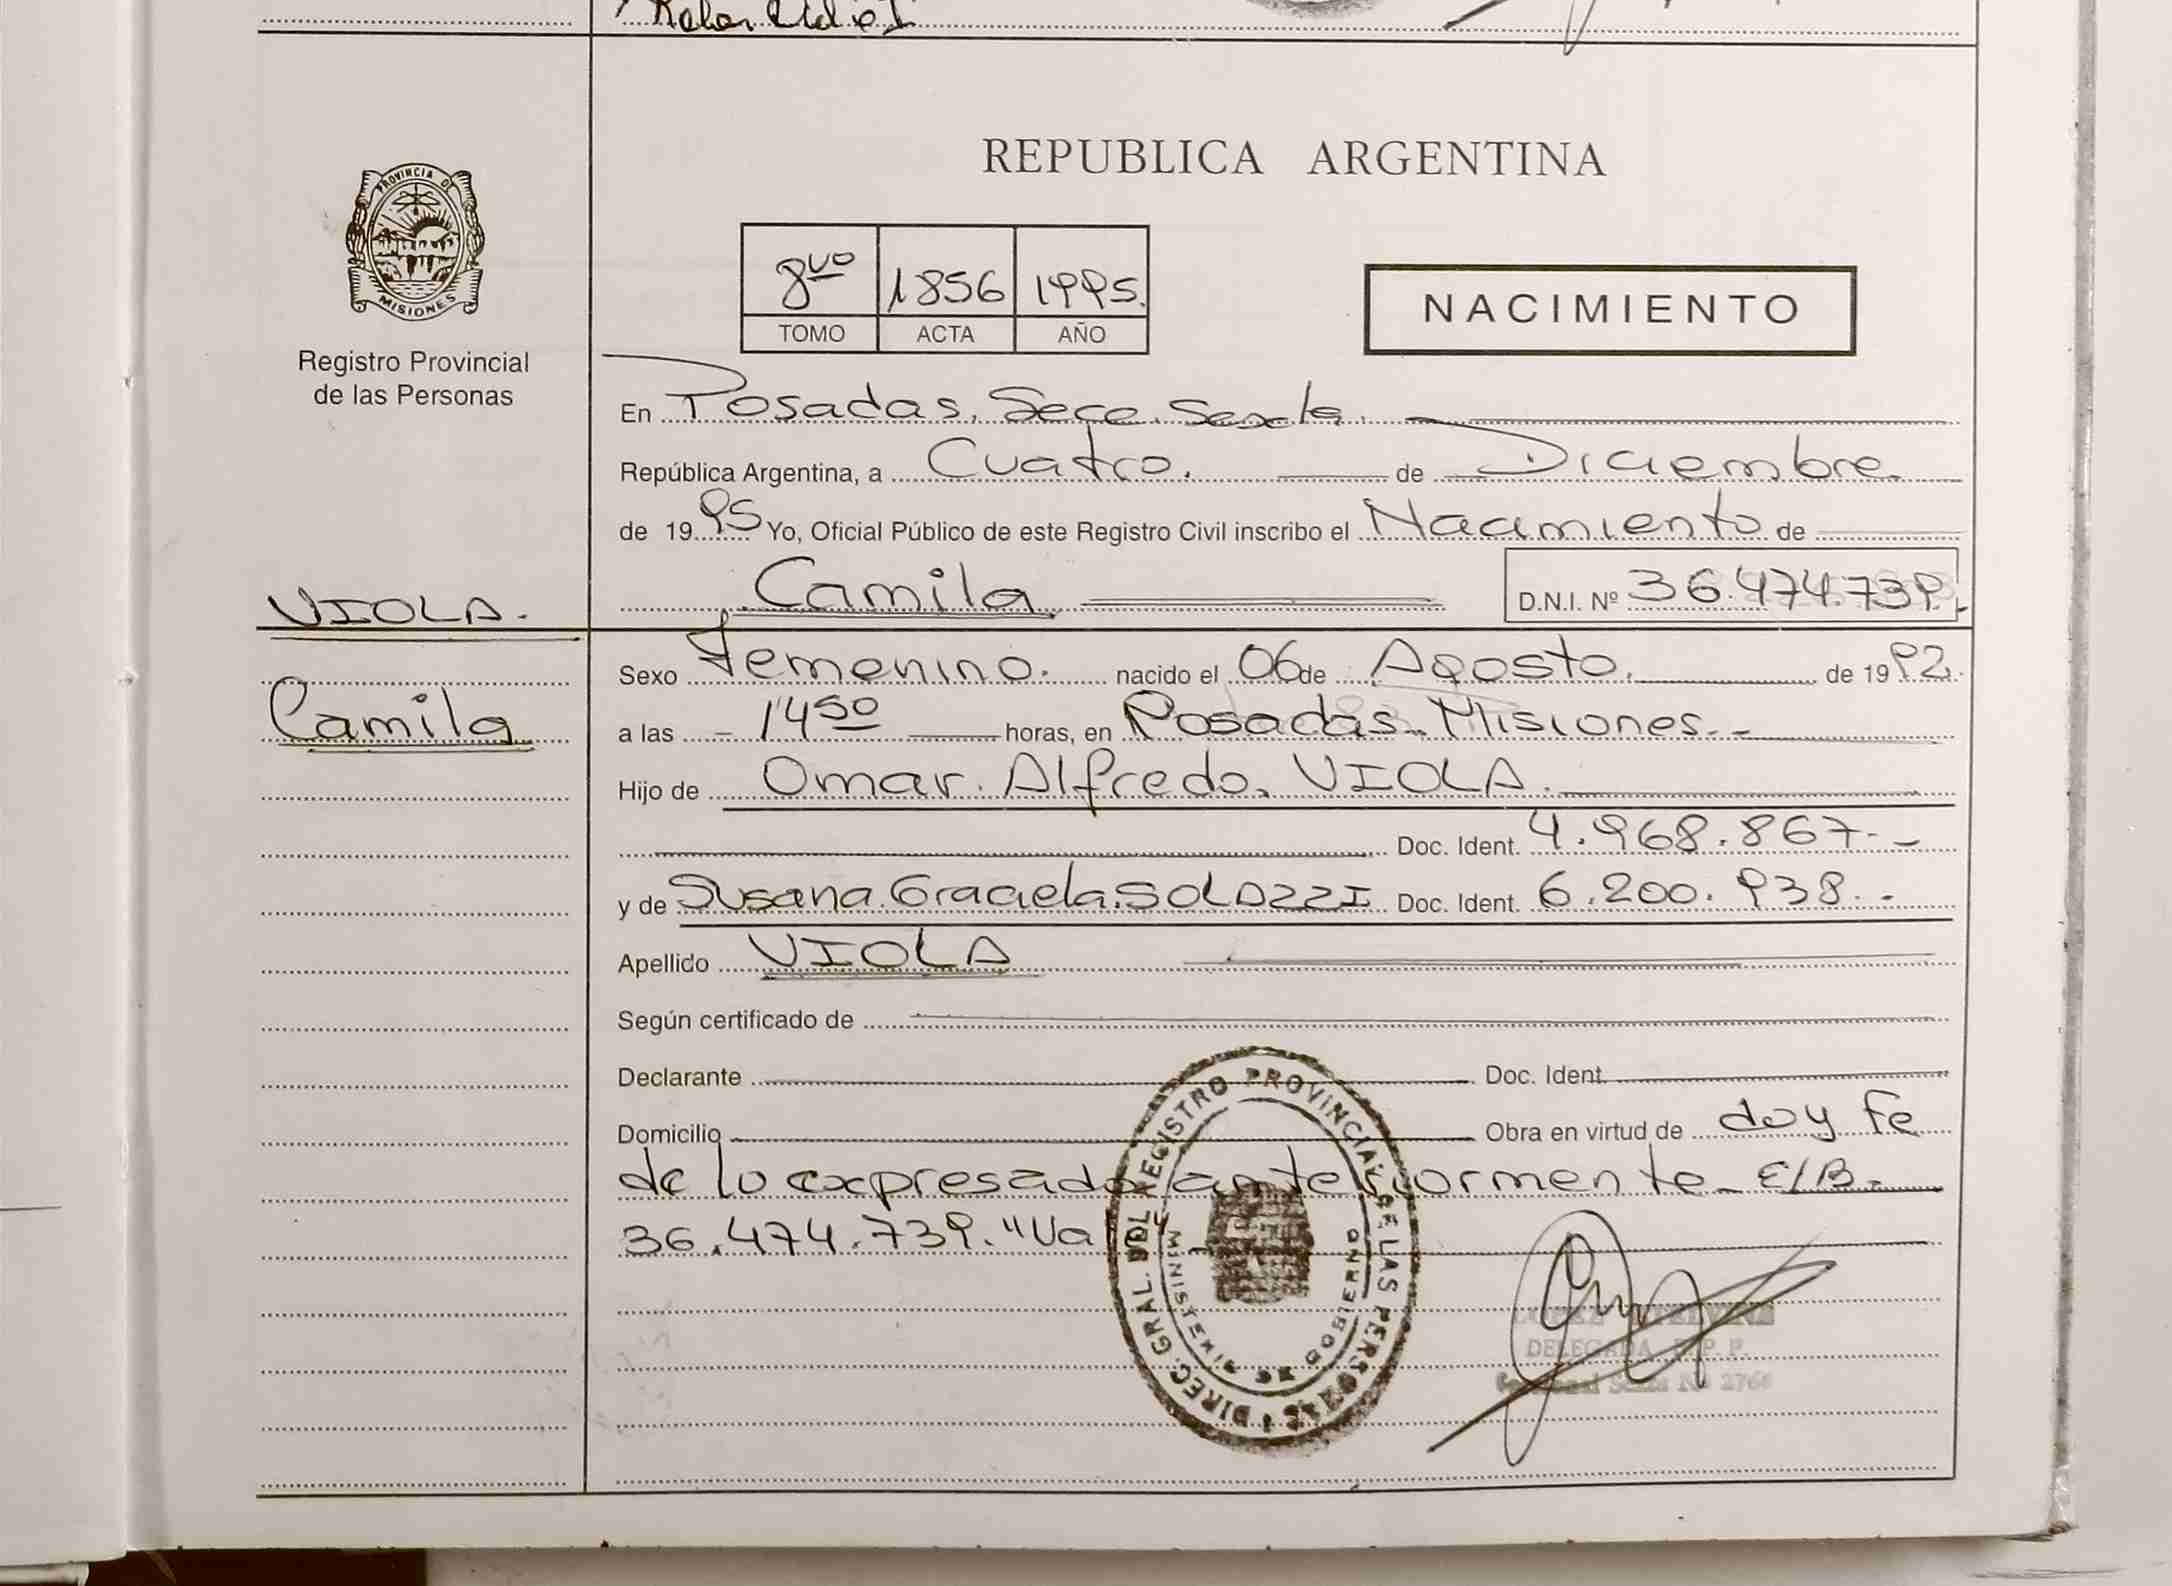 PROVINCIA DE
MISIONES
Registro Provincial
de las Personas
VIOLA.
Camila
REPUBLICA ARGENTINA
8vo 1856 1995.
TOMO ACTA AÑO
NACIMIENTO
En Posadas. Secc. Sexta.
República Argentina, a Cuatro. de Diciembre
de 1995 Yo, Oficial Público de este Registro Civil inscribo el Nacimiento de
Camila D.N.I. Nº 36.474.739.
Sexo Femenino. nacido el 06 de Agosto. de 1992.
a las 14 50 horas, en Posadas. Misiones.
Hijo de Omar. Alfredo. VIOLA.
Doc. Ident. 4.968.867.
y de Susana. Graciela. SOLAZZI Doc. Ident. 6.200.938.
Apellido VIOLA
Según certificado de
Declarante Doc. Ident.
Domicilio Obra en virtud de doy fe
de lo expresado anteriormente E/B.
36.474.739. "Va
DIREC. GRAL. DEL REGISTRO PROVINCIAL DE LAS PERSONAS
MINISTERIO DE GOBIERNO
LOPEZ
DELEGADA R. P. P.